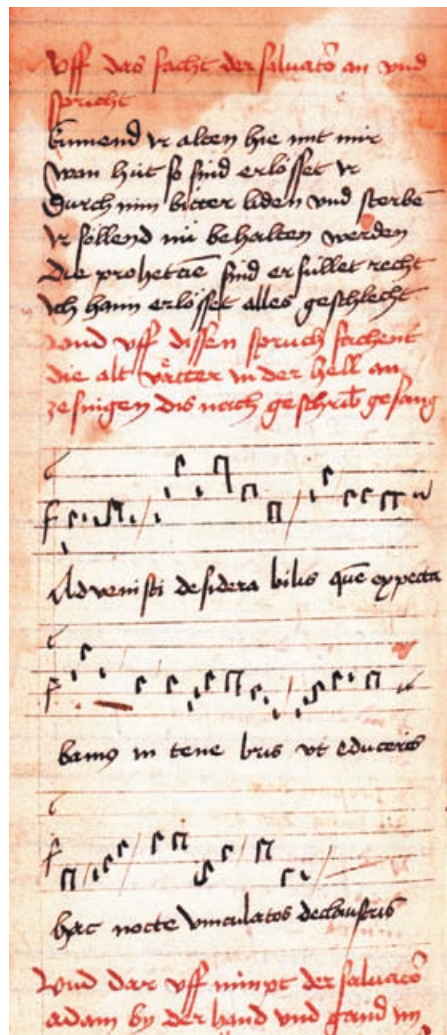 Uff das facht der salvatō an und
spricht
kumend ir alten hie mit mir
wan hüt so sind erlösset ir
durch min bitter liden und sterbē
ir söllend nū behalten werden
die prophetiē sind erfüllet recht
ich hann erlösset alles geschlecht
und uff dissen spruch fachent
die alt vätter in der hell an
ze singen dis nach geschribē gesang
Advenisti desidera bilis quē expecta
bamus in tene bris ut educeres
hac nocte vinculatos de claustris
Und dar uff nimpt der salvatō
adam by der hand und gand in